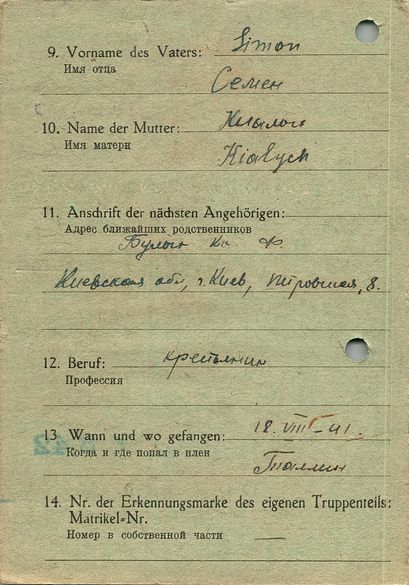 9. Vorname des Vaters: Simon
Имя отца
Семен
10. Name der Mutter:
Имя матери
11. Anschrift der nächsten Angehörigen:
Адрес ближайших родственников
Киевская обл, г. Киев, 8.
12. Beruf: крестьянин
Профессия
13 Wann und wo gefangen: 18. VIII-41.
Когда и где попал в плен
Таллин
14. Nr. der Erkennungsmarke des eigenen Truppenteils:
Matrikel=Nr.
Номер в собственной части —